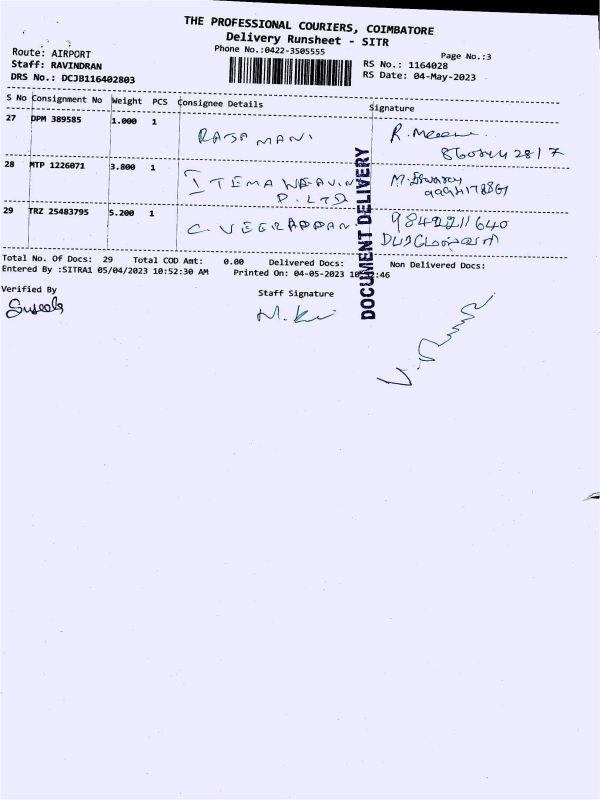 THE PROFESSIONAL COURIERS, COIMBATORE
Delivery Runsheet - SITR
Phone No.:0422-3505555
Page No.:3
Route: AIRPORT
Staff: RAVINDRAN
DRS No.: DCJB116402803
RS No.: 1164028
RS Date: 04-May-2023
S No Consignment No Weight PCS Consignee Details Signature
27 DPM 389585 1.000 1 RAJA MANI R. Meena
28 MTP 1226071 3.800 1 ITEMA WEAVIN
P. LTD
29 TRZ 25483795 5.200 1 C VEERAPPAN 9842211640
DOCUMENT DELIVERY
Total No. Of Docs: 29 Total COD Amt: 0.00 Delivered Docs: Non Delivered Docs:
Entered By :SITRA1 05/04/2023 10:52:30 AM Printed On: 04-05-2023 10:52:46
Verified By
Staff Signature